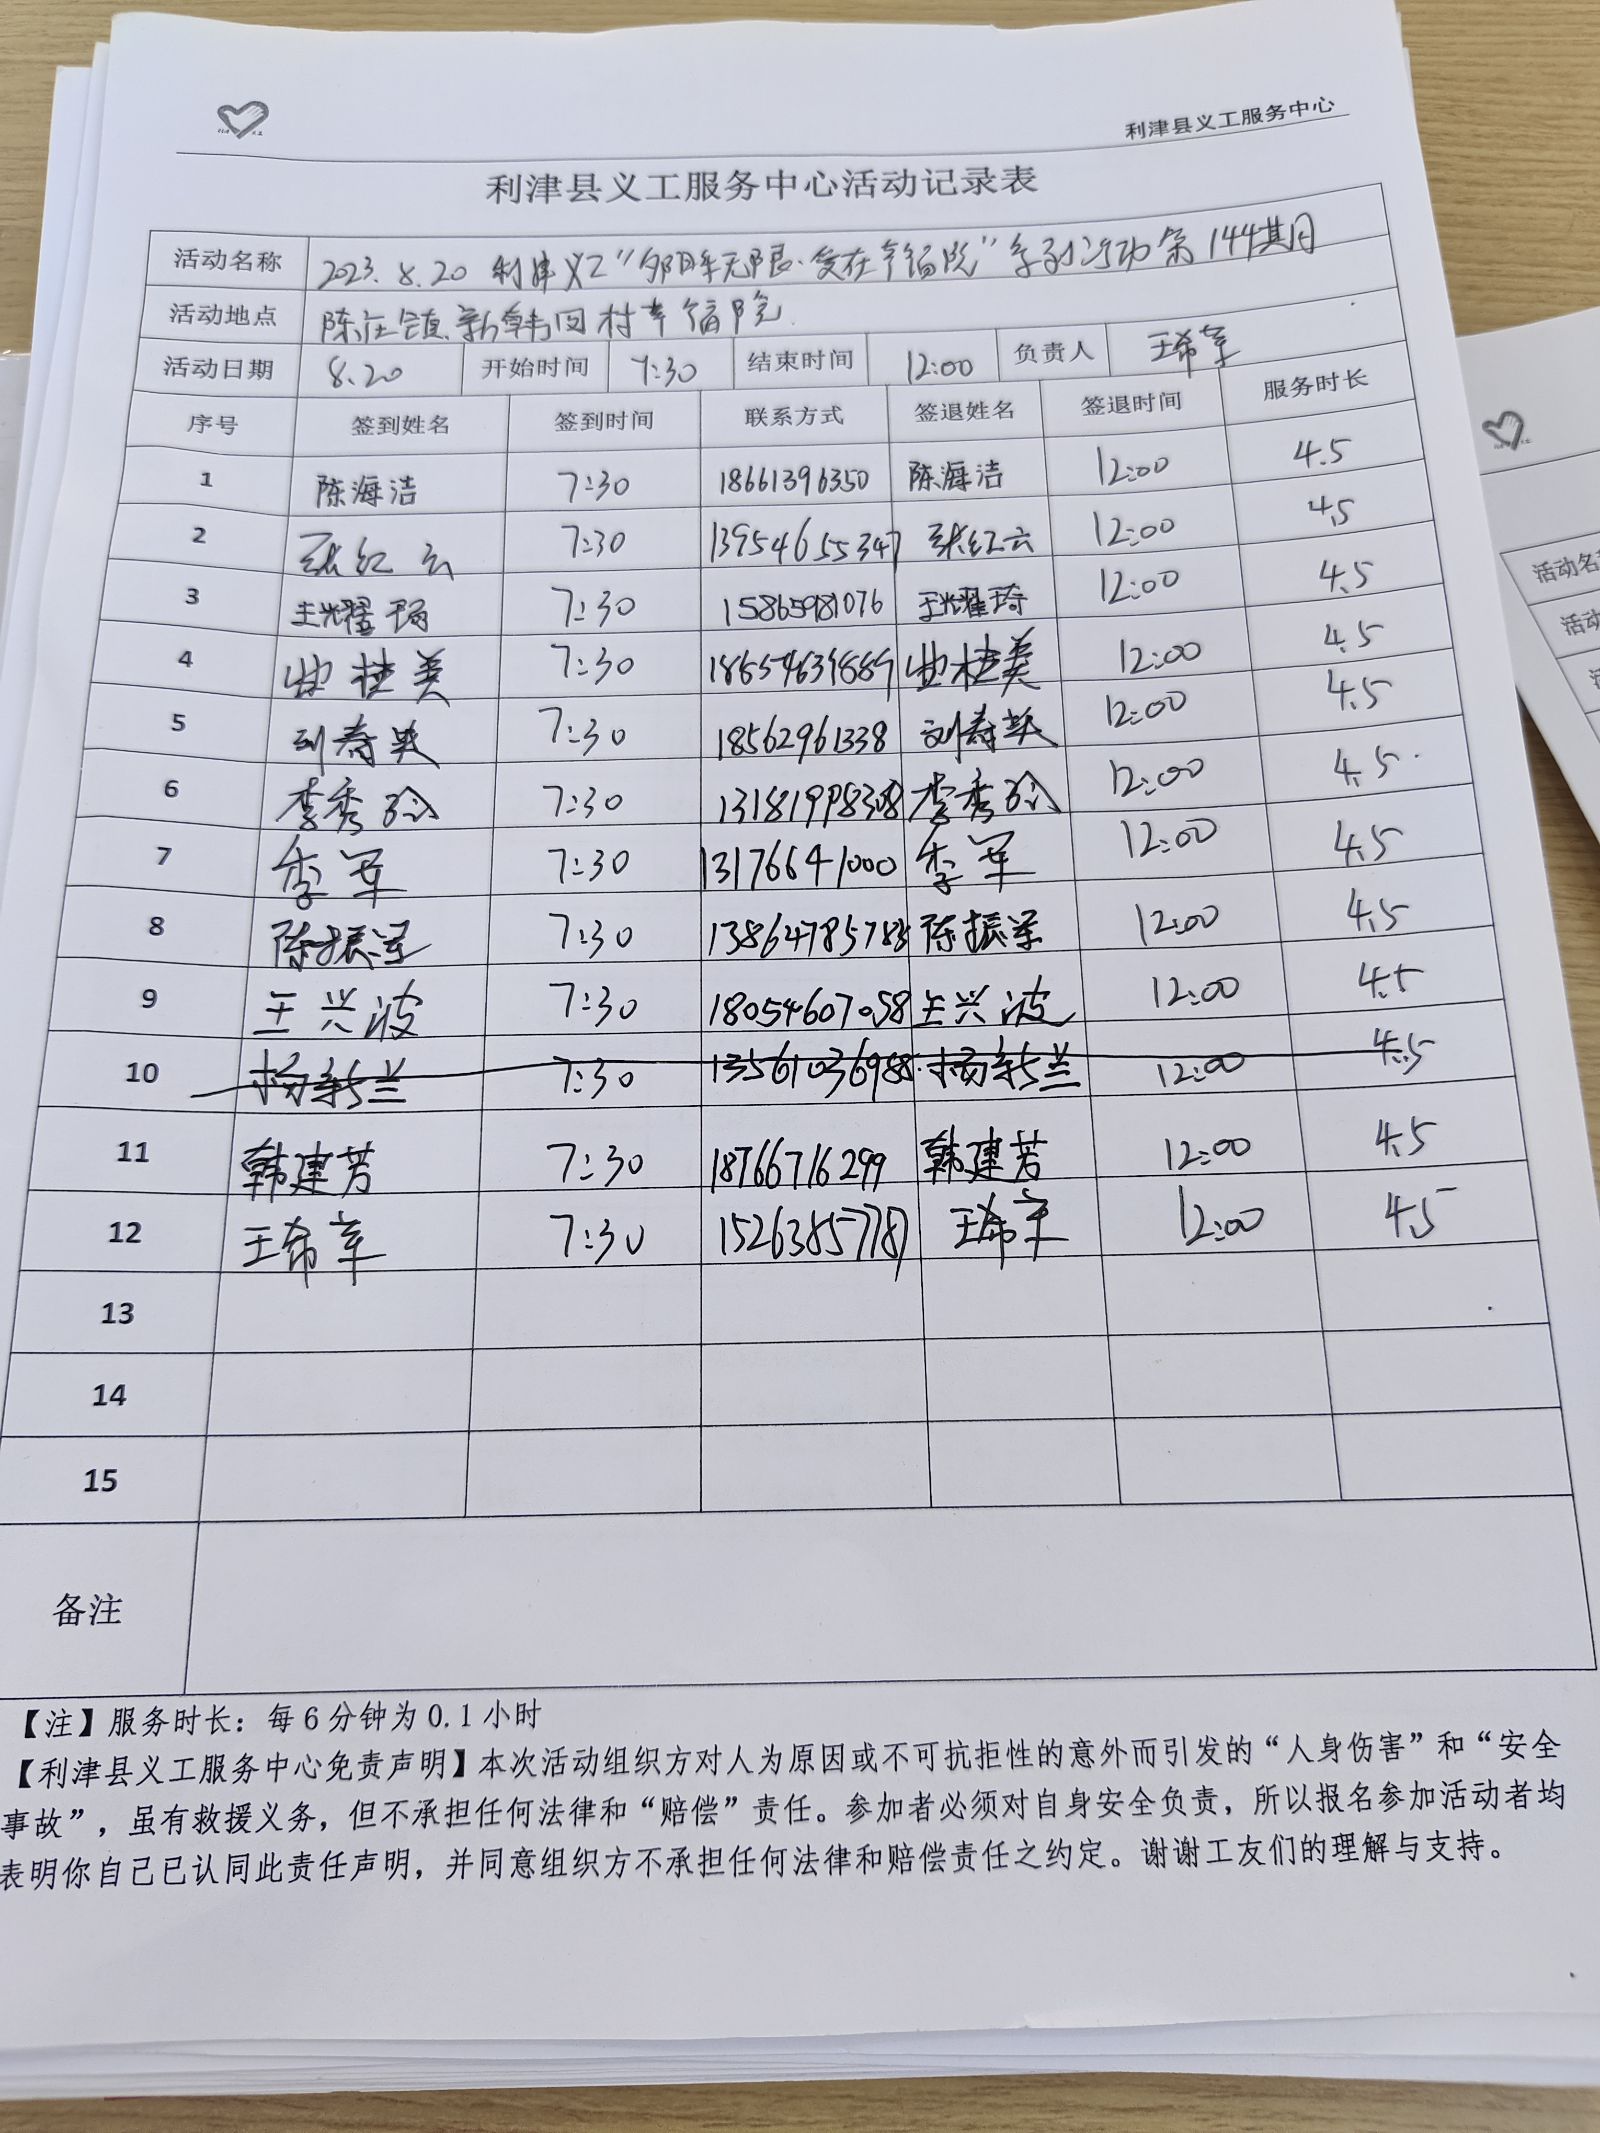 利津县义工服务中心
利津县义工服务中心活动记录表
活动名称 2023.8.20 利津义工“夕阳无限·爱在幸福院”系列活动第144期
活动地点 陈庄镇新韩田村幸福院
活动日期 8.20 开始时间 7:30 结束时间 12:00 负责人 王希军
序号 签到姓名 签到时间 联系方式 签退姓名 签退时间 服务时长
1 陈海洁 7:30 18661396350 陈海洁 12:00 4.5
2 张红云 7:30 13954655347 张红云 12:00 4.5
3 王耀琦 7:30 15865981076 王耀琦 12:00 4.5
4 曲桂美 7:30 曲桂美 12:00 4.5
5 刘寿英 7:30 18562961338 刘寿英 12:00 4.5
6 李秀 7:30 李秀 12:00 4.5
7 李军 7:30 13176641000 李军 12:00 4.5
8 陈振军 7:30 13864785783 陈振军 12:00 4.5
9 王兴波 7:30 18054607058 王兴波 12:00 4.5
10 杨新兰 7:30 13561036988 杨新兰 12:00 4.5
11 韩建芳 7:30 18766716299 韩建芳 12:00 4.5
12 王希军 7:30 15263857787 王希军 12:00 4.5
13
14
15
备注
【注】服务时长：每6分钟为0.1小时
【利津县义工服务中心免责声明】本次活动组织方对人为原因或不可抗拒性的意外而引发的“人身伤害”和“安全
事故”，虽有救援义务，但不承担任何法律和“赔偿”责任。参加者必须对自身安全负责，所以报名参加活动者均
表明你自己已认同此责任声明，并同意组织方不承担任何法律和赔偿责任之约定。谢谢工友们的理解与支持。
活动名
活动